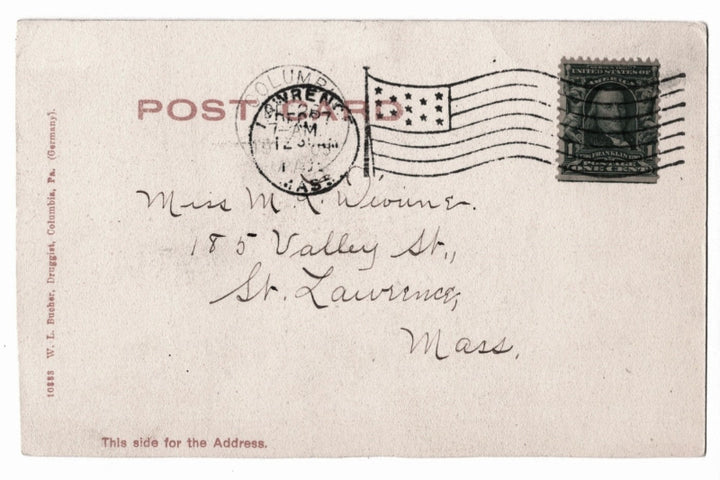 POST CARD
COLUMBI
LAWRENCE
FEB
7-AM
12 30 AM
MASS.
UNITED STATES OF
AMERICA
FRANKLIN
POSTAGE
ONE CENT
Miss M. L.
185 Valley St.,
St. Lawrence,
Mass.
10883 W. L. Bucher, Druggist, Columbia, Pa. (Germany).
This side for the Address.